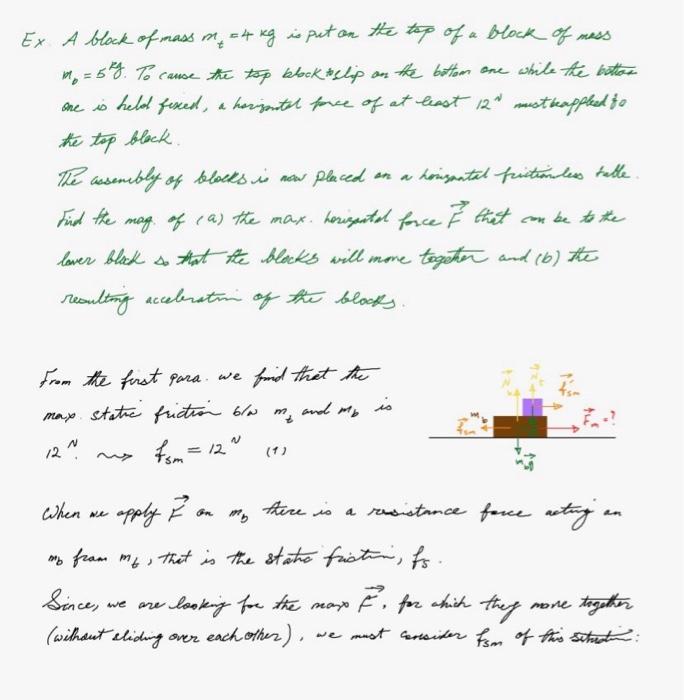 Ex. A block of mass m_t = 4 kg is put on the top of a block of mass
m_b = 5 kg. To cause the top block to slip on the bottom one while the bottom
one is held fixed, a horizontal force of at least 12 N must be applied to
the top block.
The assembly of blocks is now placed on a horizontal frictionless table.
Find the mag. of (a) the max. horizontal force F⃗ that can be to the
lower block so that the blocks will move together and (b) the
resulting acceleration of the blocks.
From the first para. we find that the
max. static friction b/w m_t and m_b is
12 N. ⇝ f_sm = 12 N (1)
N⃗ N⃗_t f⃗'_sm
m_b
f⃗_sm F⃗_m = ?
m_b g⃗
When we apply F⃗ on m_b there is a resistance force acting on
m_b from m_t, that is the static friction, f_s.
Since, we are looking for the max F⃗, for which they move together
(without sliding over each other), we must consider f_sm of this situation: